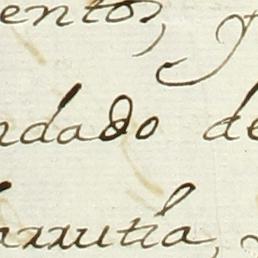 ento,
ndado de
arrutia,